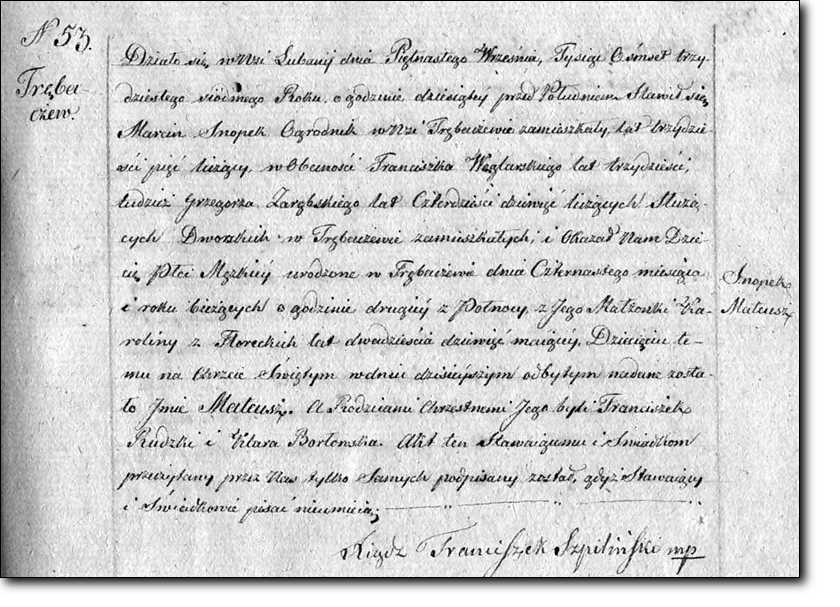 N 53.
Trębaczew.
Działo się w Wsi Lubani dnia Piętnastego Września, Tysiąc Ośmset trzy-
dziestego siódmego Roku o godzinie dziesiątey przed Południem Stawił się
Marcin Snopek Ogrodnik w Wsi Trębaczewie zamieszkały, lat trzydzie-
ści pięć liczący w Obecności Franciszka Węglarskiego lat trzydzieści,
tudzież Grzegorza Zarębskiego lat Czterdzieści dziewięć liczących Służą-
cych Dworskich w Trębaczewie zamieszkałych, i Okazał Nam Dzie-
cię Płci Męzkiey urodzone w Trębaczewie dnia Czternastego miesiąca
i roku bieżących o godzinie drugiey z Połnocy, z Jego Małżonki Ka-
roliny z Floreckich lat dwadzieścia dziewięć maiącey. Dziecięciu te-
mu na Chrzcie Świętym w dniu dzisieyszym odbytym nadane zosta-
ło Imie Mateusz. A Rodzicami Chrzestnemi Jego byli Franciszek
Rudzki i Klara Bortowska. Akt ten Stawaiącemu i Świadkom
przeczytany przez Nas tylko Samych podpisany został, gdyż Stawaiący
i Świadkowie pisać nieumieią.
Snopek
Mateusz
Xiądz Franciszek Szpiliński mp